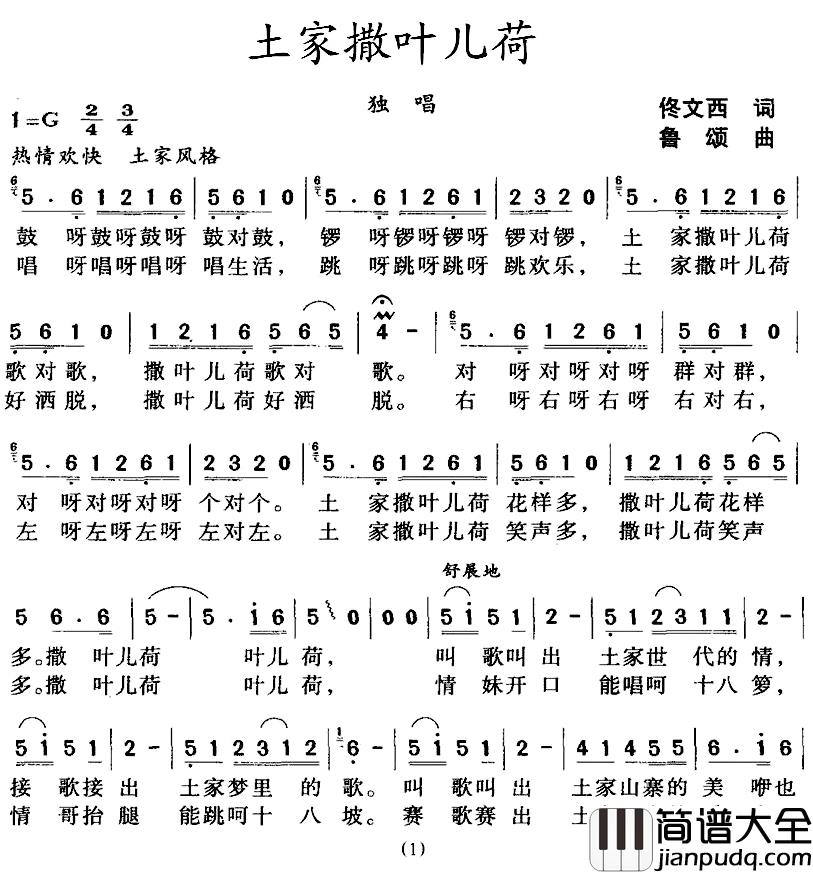 土家撒叶儿荷
独 唱
1=G 2/4 3/4
佟文西 词
鲁 颂 曲
热情欢快 土家风格
6 5 . 6 1 2 1 6 | 5 6 1 0 | 6 5 . 6 1 2 6 1 | 2 3 2 0 | 6 5 . 6 1 2 1 6 |
鼓 呀鼓呀鼓呀 鼓对鼓， 锣 呀锣呀锣呀 锣对锣， 土 家撒叶儿荷
唱 呀唱呀唱呀 唱生活， 跳 呀跳呀跳呀 跳欢乐， 土 家撒叶儿荷
5 6 1 0 | 1 2 1 6 5 6 5 | 4 - | 6 5 . 6 1 2 6 1 | 5 6 1 0 |
歌对歌， 撒叶儿荷歌对 歌。 对 呀对呀对呀 群对群，
好洒脱， 撒叶儿荷好洒 脱。 右 呀右呀右呀 右对右，
6 5 . 6 1 2 6 1 | 2 3 2 0 | 6 5 . 6 1 2 6 1 | 5 6 1 0 | 1 2 1 6 5 6 5 |
对 呀对呀对呀 个对个。 土 家撒叶儿荷 花样多， 撒叶儿荷花样
左 呀左呀左呀 左对左。 土 家撒叶儿荷 笑声多， 撒叶儿荷笑声
舒展地
5 6 . 6 | 5 - | 5 . i 6 | 5 0 | 0 0 | 5 i 5 1 | 2 - | 5 1 2 3 1 1 | 2 - |
多。撒 叶儿荷 叶儿 荷， 叫 歌叫 出 土家世 代的 情，
多。撒 叶儿荷 叶儿 荷， 情 妹开 口 能唱呵 十八 箩，
5 i 5 1 | 2 - | 5 1 2 3 1 2 | 1 6 - | 5 i 5 1 | 2 - | 4 1 4 5 5 | 6 . i 6 |
接 歌接 出 土家梦里 的 歌。 叫 歌叫 出 土家山寨的 美 咿也
情 哥抬 腿 能跳呵十 八 坡。 赛 歌赛 出 土
(1)
简谱大全
jianpudq.com